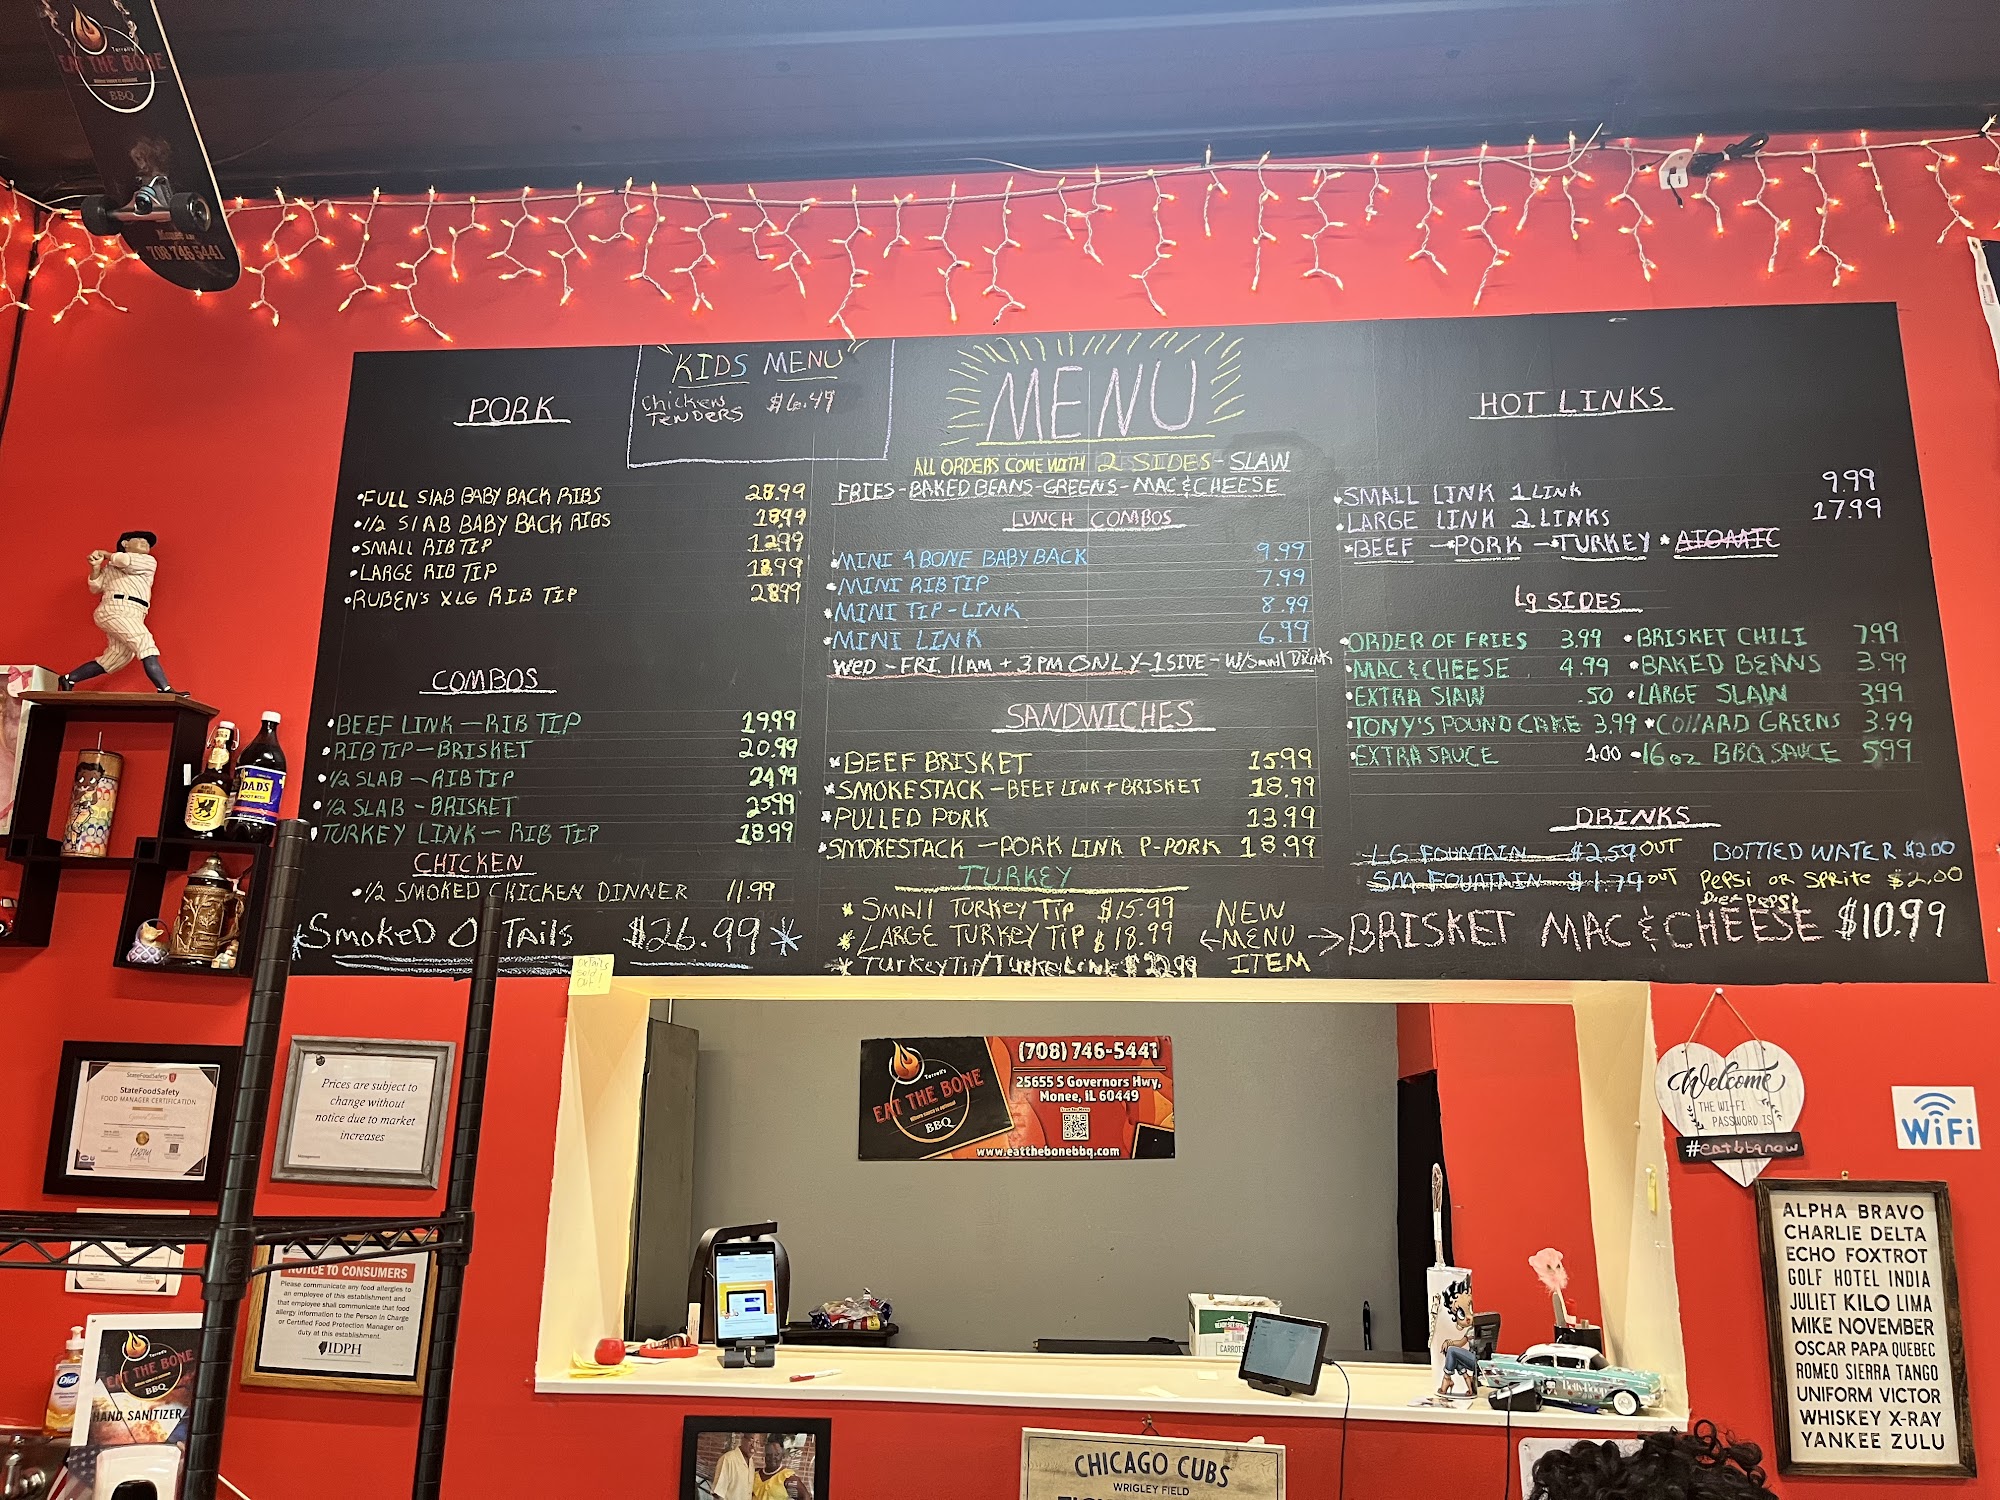 Terrell's
EAT THE BONE
BBQ
Monee IL
708 746 5441
PORK
•FULL SLAB BABY BACK RIBS 28.99
•1/2 SLAB BABY BACK RIBS 18.99
•SMALL RIB TIP 12.99
•LARGE RIB TIP 18.99
•RUBEN'S XLG RIB TIP 28.99
COMBOS
•BEEF LINK—RIB TIP 19.99
•RIB TIP—BRISKET 20.99
•1/2 SLAB—RIB TIP 24.99
•1/2 SLAB-BRISKET 25.99
•TURKEY LINK—RIB TIP 18.99
CHICKEN
•1/2 SMOKED CHICKEN DINNER 11.99
*SMOKED OxTAils $26.99*
KIDS MENU
Chicken $6.49
TENDERS
MENU
ALL ORDERS COME WITH 2 SIDES-SLAW
FRIES-BAKED BEANS-GREENS-MAC&CHEESE
LUNCH COMBOS
•MINI 4 BONE BABY BACK 9.99
•MINI RIB TIP 7.99
•MINI TIP-LINK 8.99
•MINI LINK 6.99
WED-FRI 11AM+3PM ONLY-1 SIDE-W/Small DRINK
SANDWICHES
*BEEF BRISKET 15.99
*SMOKESTACK-BEEF LINK+BRISKET 18.99
*PULLED PORK 13.99
*SMOKESTACK—PORK LINK P-PORK 18.99
TURKEY
*SMALL TURKEY TIP $15.99
*LARGE TURKEY TIP $18.99
*TURKEYTIP/TURKEYLINK $22.99
NEW
←MENU→
ITEM
HOT LINKS
•SMALL LINK 1 LINK 9.99
•LARGE LINK 2 LINKS 17.99
*BEEF—*PORK—*TURKEY *ATOMIC
Lg SIDES
•ORDER OF FRIES 3.99 •BRISKET CHILI 7.99
•MAC&CHEESE 4.99 •BAKED BEANS 3.99
•EXTRA SLAW .50 •LARGE SLAW 3.99
•TONY'S POUND CAKE 3.99 •COLLARD GREENS 3.99
•EXTRA SAUCE 1.00 •16oz BBQ SAUCE 5.99
DRINKS
LG FOUNTAIN $2.59 OUT BOTTLED WATER $2.00
SM FOUNTAIN $1.79 OUT Pepsi OR SPRITE $2.00
Diet Pepsi
BRISKET MAC&CHEESE $10.99
OxTails
Sold
Out!
DAD'S
ROOT BEER
StateFoodSafety
StateFoodSafety
FOOD MANAGER CERTIFICATION
Prices are subject to
change without
notice due to market
increases
Management
NOTICE TO CONSUMERS
Please communicate any food allergies to
an employee of this establishment and
that employee shall communicate that food
allergy information to the Person in Charge
or Certified Food Protection Manager on
duty at this establishment.
IDPH
Dial
Terrell's
EAT THE BONE
BBQ
HAND SANITIZER
Terrell's
EAT THE BONE
Where sauce is optional
BBQ
(708) 746-5441
25655 S Governors Hwy,
Monee, IL 60449
Scan for Menu
www.eatthebonebbq.com
CARROTS
Betty Boop
CHICAGO CUBS
WRIGLEY FIELD
Welcome
THE WI-FI
PASSWORD IS
#eatbbqnow
WiFi
ALPHA BRAVO
CHARLIE DELTA
ECHO FOXTROT
GOLF HOTEL INDIA
JULIET KILO LIMA
MIKE NOVEMBER
OSCAR PAPA QUEBEC
ROMEO SIERRA TANGO
UNIFORM VICTOR
WHISKEY X-RAY
YANKEE ZULU